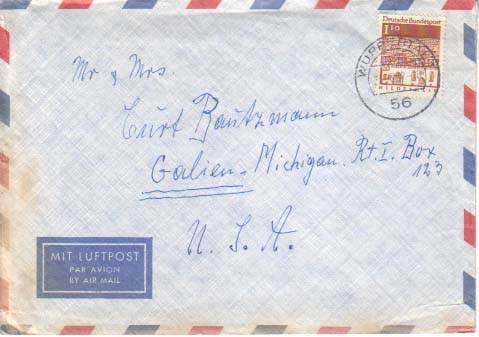 Deutsche Bundespost
110
WUPPERTAL
56
Mr & Mrs.
Curt Bautzmann
Galien - Michigan. Rt. I. Box
123
U. S. A.
MIT LUFTPOST
PAR AVION
BY AIR MAIL